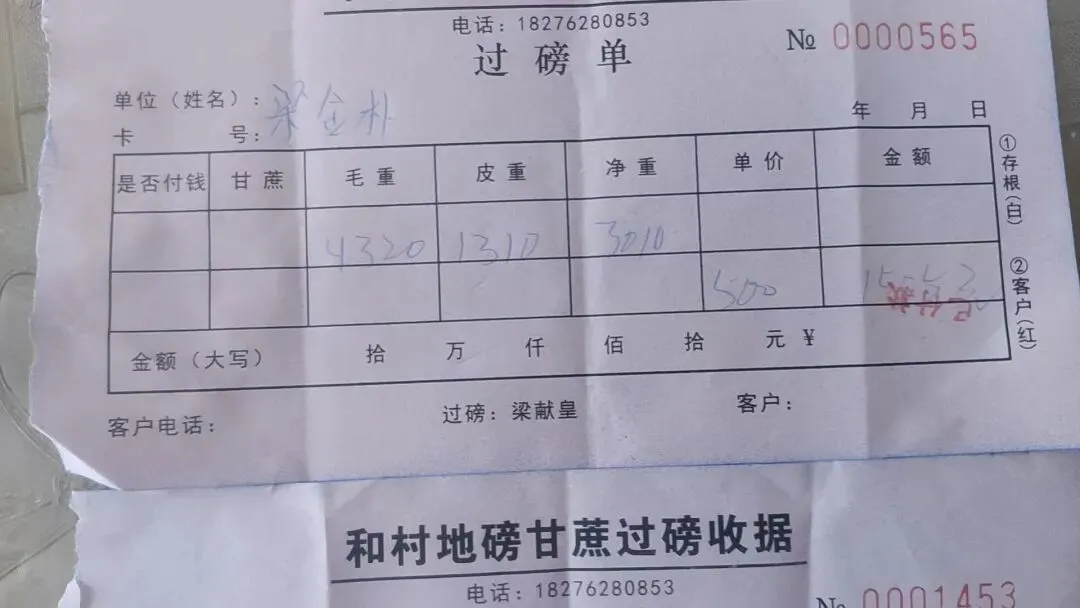 电话：18276280853
过磅单
№ 0000565
单位（姓名）：梁金朴
年 月 日
卡 号：
是否付钱 甘蔗 毛重 皮重 净重 单价 金额
4320 1310 3010
500
金额（大写） 拾 万 仟 佰 拾 元 ¥
①存根(白)
②客户(红)
客户电话： 过磅：梁献皇 客户：
和村地磅甘蔗过磅收据
电话：18276280853
№ 0001453